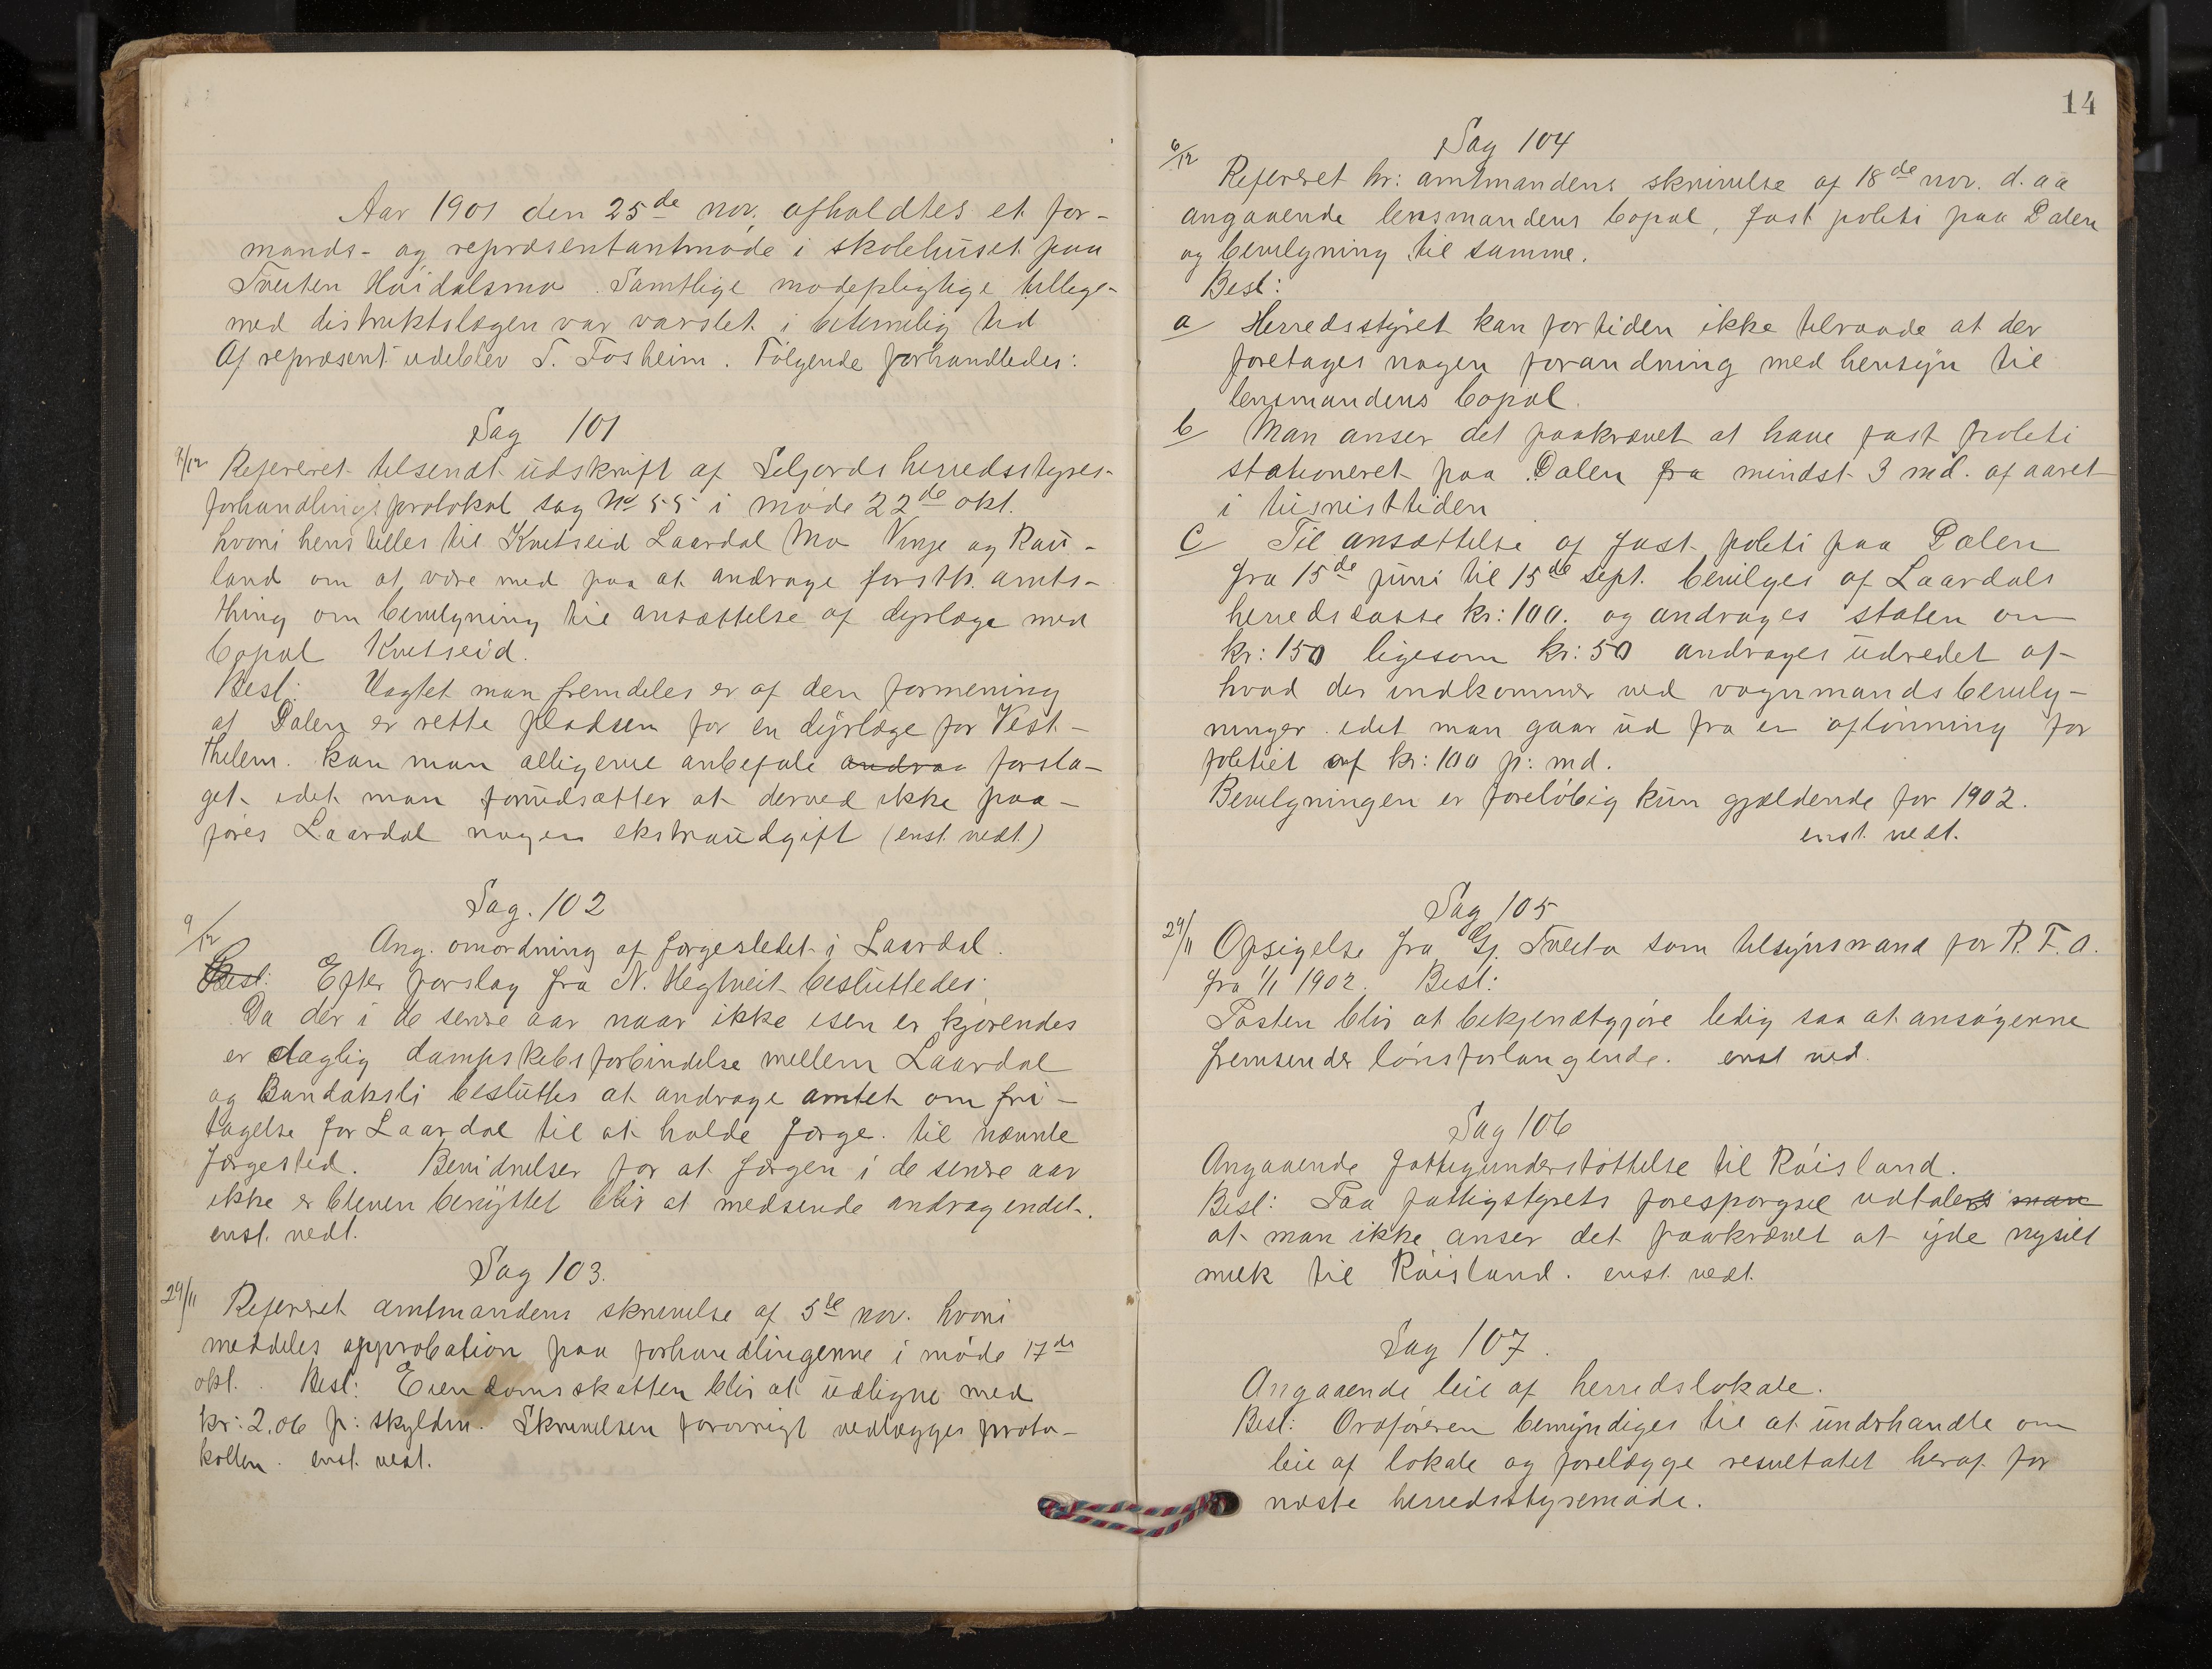 Aar 1901 den 25de nov. afholdtes et for-
mands- og repræsentantmøde i skolehuset paa
Tveiten Høidalsmo. Samtlige mødepligtige tillige-
med distriktslægen var varslet i betimelig tid
Af repræsent. udeblev T. Fosheim. Følgende forhandledes:
Sag 101
9/12 Refereret tilsendt udskrift af Seljords herredsstyres-
forhandlingsprotokol sag No 55 i møde 22de okt.
hvori henstilles til Kvitseid Laardal Mo Vinje og Rau-
land om at være med paa at andrage førstk. amts-
thing om bevilgning til ansættelse af dyrlæge med
bopæl Kvitseid.
Besl: Uagtet man fremdeles er af den formening
at Dalen er rette pladsen for en dyrlæge for Vest-
thelem. kan man alligevel anbefale andrag forsla-
get idet man forudsætter at derved ikke paa-
føres Laardal nogen ekstraudgift (enst. vedt.)
Sag. 102
9/12
Ang. omordning af færgestedet i Laardal.
Besl: Efter forslag fra N. Hegtveit besluttedes:
Da der i de senere aar naar ikke isen er kjørendes
er daglig dampskibsforbindelse mellem Laardal
og Bandaksli besluttes at andrage amtet om fri-
tagelse for Laardal til at holde færge til nævnte
færgested. Bevidnelser for at færgen i de senere aar
ikke er bleven benyttet blir at medsende andragendet.
enst. vedt.
Sag 103.
29/11 Refereret amtmandens skrivelse af 5te nov. hvori
meddeles approbation paa forhandlingerne i møde 17de
okt. Besl: Eiendomsskatten blir at udligne med
kr: 2.06 p: skyldm. Skrivelsen forøvrigt vedlægges proto-
kollen. enst. vedt.
14
Sag 104
6/12
Refereret hr: amtmandens skrivelse af 18de nov. d. aa
angaaende lensmandens bopæl, fast politi paa Dalen
og bevilgning til samme.
Besl:
a Herredsstyret kan for tiden ikke tilraade at der
foretages nogen forandring med hensyn til
lensmandens bopæl.
b Man anser det paakrævet at have fast politi
stationeret paa Dalen fra mindst 3 md. af aaret
i turisttiden
c Til ansættelse af fast politi paa Dalen
fra 15de juni til 15de sept. bevilges af Laardals
herredscasse kr: 100. og andrages staten om
kr: 150 ligesom kr: 50 andrages udredet af
hvad der indkommer ved vognmandsbevilg-
ninger idet man gaar ud fra en aflønning for
politiet af kr: 100 p: md.
Bevilgningen er foreløbig kun gjældende for 1902.
enst. vedt.
Sag 105
29/11 Opsigelse fra Gj. Tveito som tilsynsmand for R. T. A.
fra 1/1 1902. Besl:
Posten blir at bekjendtgjøre ledig saa at ansøgerne
fremsender lønsforlangende. enst ved.
Sag 106
Angaaende fattigunderstøttelse til Røisland.
Besl: Paa fattigstyrets forespørgsel udtales man
at man ikke anser det paakrævet at yde nysilt
melk til Røisland. enst. vedt.
Sag 107.
Angaaende leie af herredslokale.
Besl: Ordføreren bemyndiges til at underhandle om
leie af lokale og forelægge resultatet heraf for
næste herredsstyremøde.